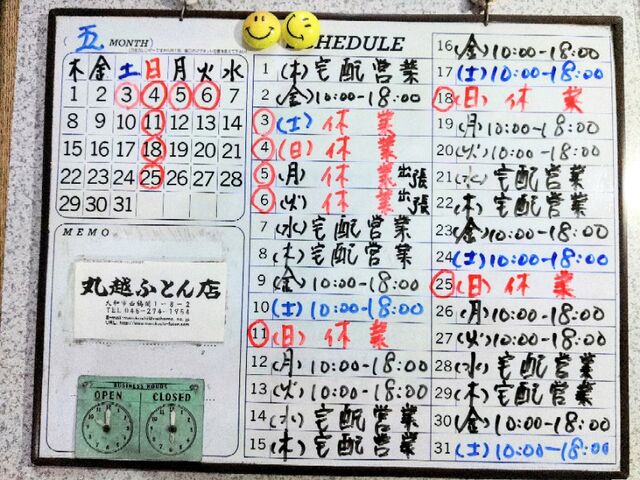 (五 MONTH)
木 金 土 日 月 火 水
1 2 3 4 5 6 7
8 9 10 11 12 13 14
15 16 17 18 19 20 21
22 23 24 25 26 27 28
29 30 31
MEMO
丸越ふとん店
大和市西鶴間1-8-2
TEL 046-274-1954
BUSINESS HOURS
OPEN CLOSED
SCHEDULE
1 (木) 宅配営業
2 (金) 10:00-18:00
3 (土) 休業
4 (日) 休業
5 (月) 休業 出張
6 (火) 休業 出張
7 (水) 宅配営業
8 (木) 宅配営業
9 (金) 10:00-18:00
10 (土) 10:00-18:00
11 (日) 休業
12 (月) 10:00-18:00
13 (火) 10:00-18:00
14 (水) 宅配営業
15 (木) 宅配営業
16 (金) 10:00-18:00
17 (土) 10:00-18:00
18 (日) 休業
19 (月) 10:00-18:00
20 (火) 10:00-18:00
21 (水) 宅配営業
22 (木) 宅配営業
23 (金) 10:00-18:00
24 (土) 10:00-18:00
25 (日) 休業
26 (月) 10:00-18:00
27 (火) 10:00-18:00
28 (水) 宅配営業
29 (木) 宅配営業
30 (金) 10:00-18:00
31 (土) 10:00-18:00